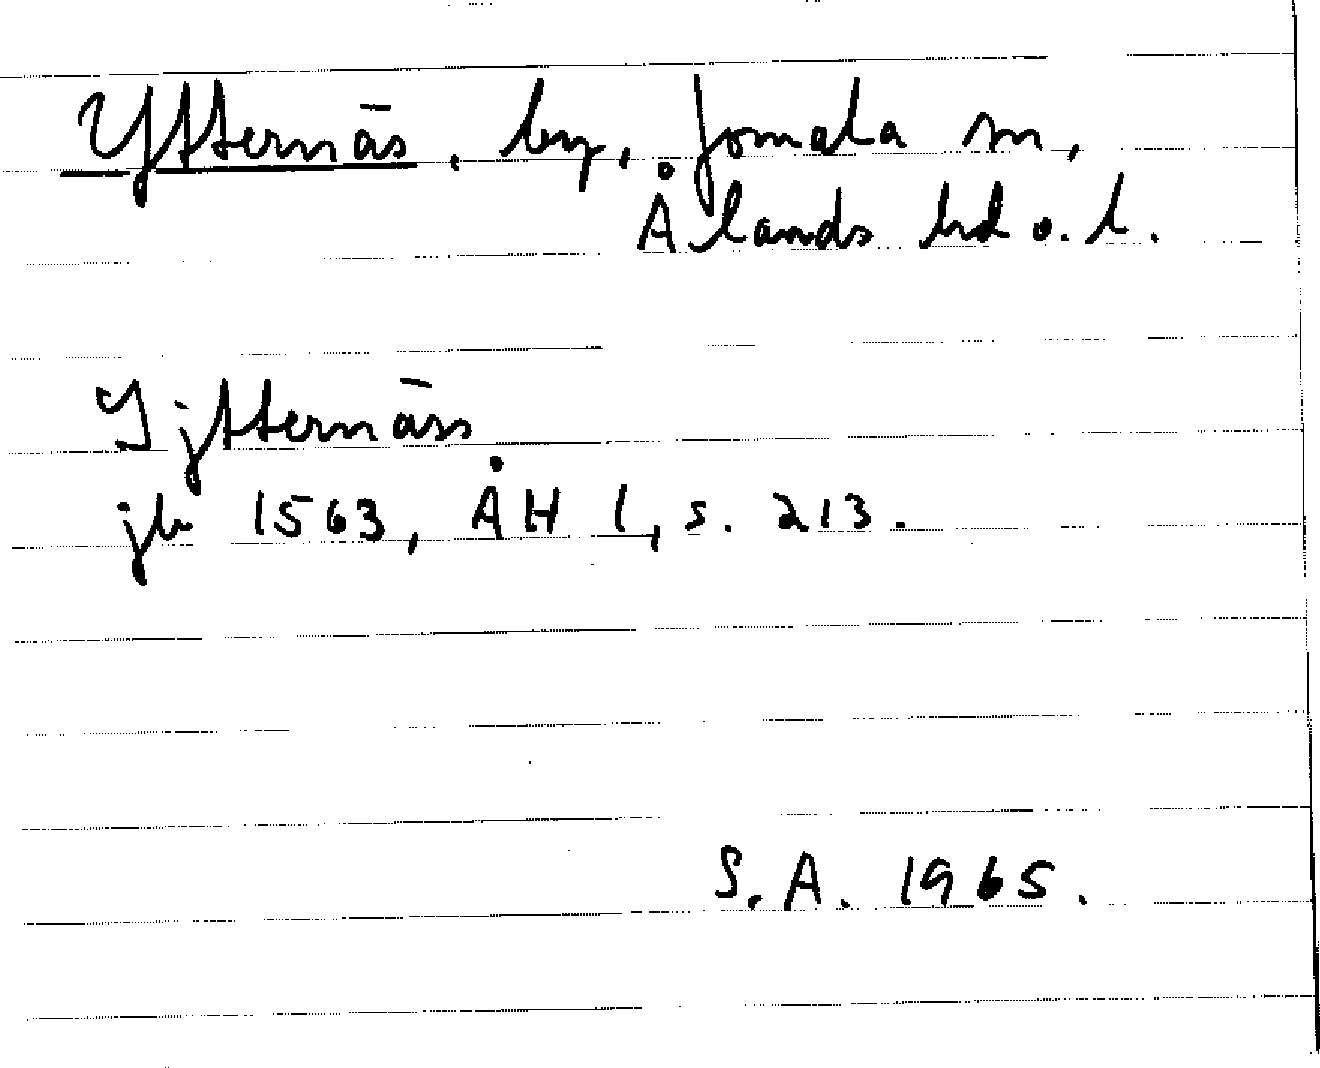 Ytternäs, by, Jomala sn,
Ålands hd o. l.
Ijtternäss
jb 1563, ÅH 1, s. 213.
S. A. 1965.